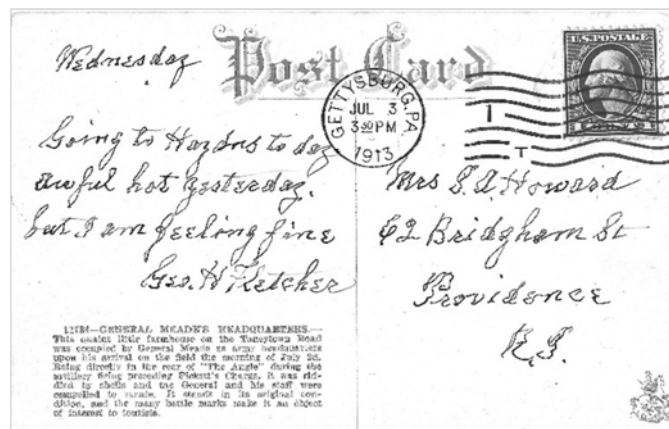 Wednesday
Post Card
GETTYSBURG, PA
JUL 3
3 30 PM
1913
U.S. POSTAGE
Going to Haydns to day
awful hot yesterday.
but I am feeling fine
Geo. H Fletcher
Mrs S. A. Howard
62 Bridgham St
Providence
R. I.
GENERAL MEADE'S HEADQUARTERS.—
This quaint little farmhouse on the Taneytown Road
was occupied by General Meade as army headquarters
upon his arrival on the field the morning of July 2d.
Being directly in the rear of "The Angle" during the
artillery firing preceding Pickett's Charge, it was rid-
dled by shells and the General and his staff were
compelled to vacate. It stands in its original con-
dition, and the many battle marks make it an object
of interest to tourists.